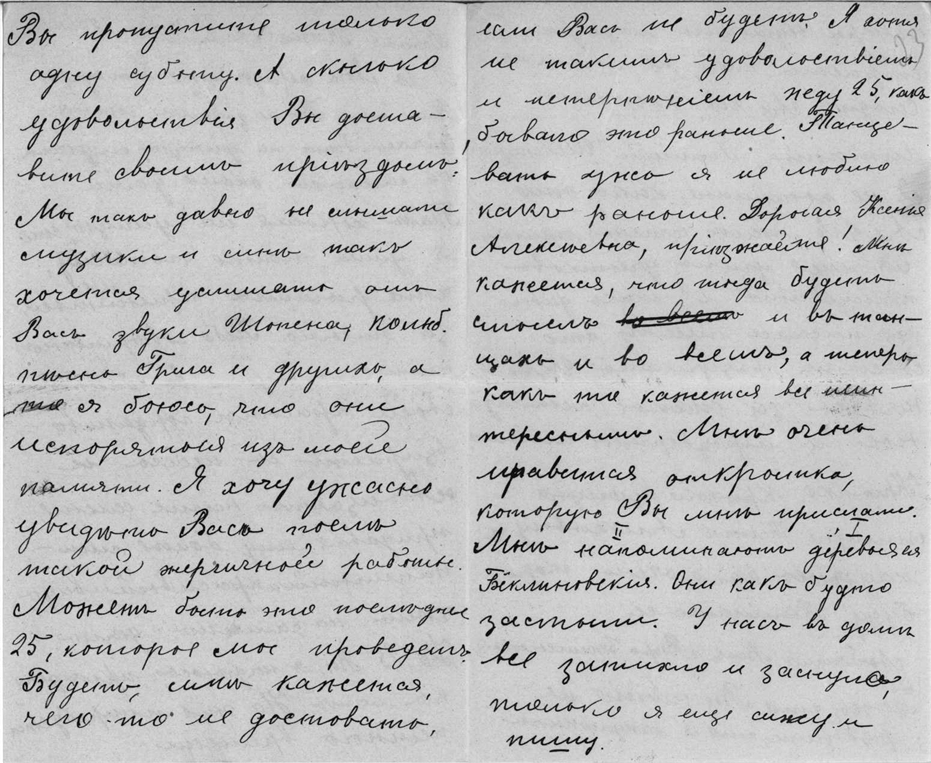 Вы пропустите только
одну субботу. А сколько
удовольствія Вы доста-
вите своимъ пріѣздомъ.
Мы такъ давно не слышали
музыки и мнѣ такъ
хочется услышать отъ
Васъ звуки Шопена, колыб.
пѣснь Грига и другихъ, а
то я боюсь, что они
испорятся изъ моей
памяти. Я хочу ужасно
увидѣть Васъ послѣ
такой энергичной работы.
Можетъ быть это послѣднее
25, которое мы проведемъ.
Будетъ, мнѣ кажется,
чего-то не доставать,
если Васъ не будетъ. Я хотя
23
не такимъ удовольствіемъ
и нетерпѣніемъ жду 25, какъ
бывало это раньше. Танце-
вать ужъ я не люблю
какъ раньше. Дорогая Ксенія
Алексѣевна, пріѣзжайте! Мнѣ
кажется, что тогда будетъ
смыслъ во всемъ и въ тан-
цахъ и во всемъ, а теперь
какъ то кажется все неин-
тереснымъ. Мнѣ очень
нравится открытка,
которую Вы мнѣ прислали.
II I
Мнѣ напоминаютъ деревья ея
Бёклиновскія. Они какъ будто
застыли. У насъ въ домѣ
все затихло и заснуло,
только я еще сижу и
пишу.